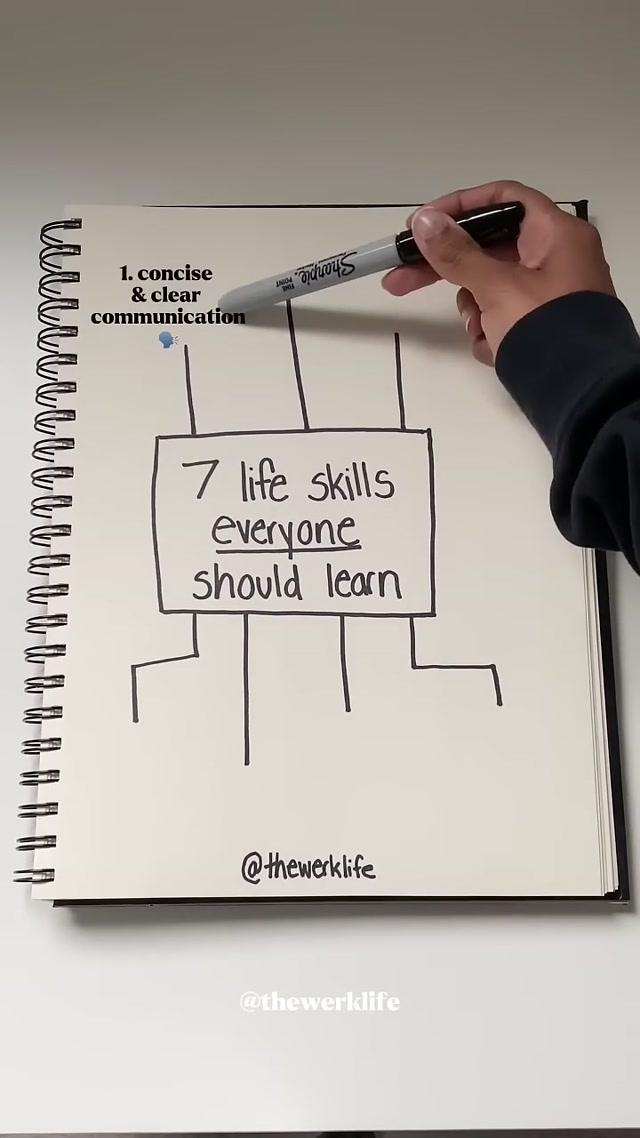 1. concise
& clear
communication
Sharpie
FINE
POINT
7 life skills
everyone
should learn
@thewerklife
@thewerklife